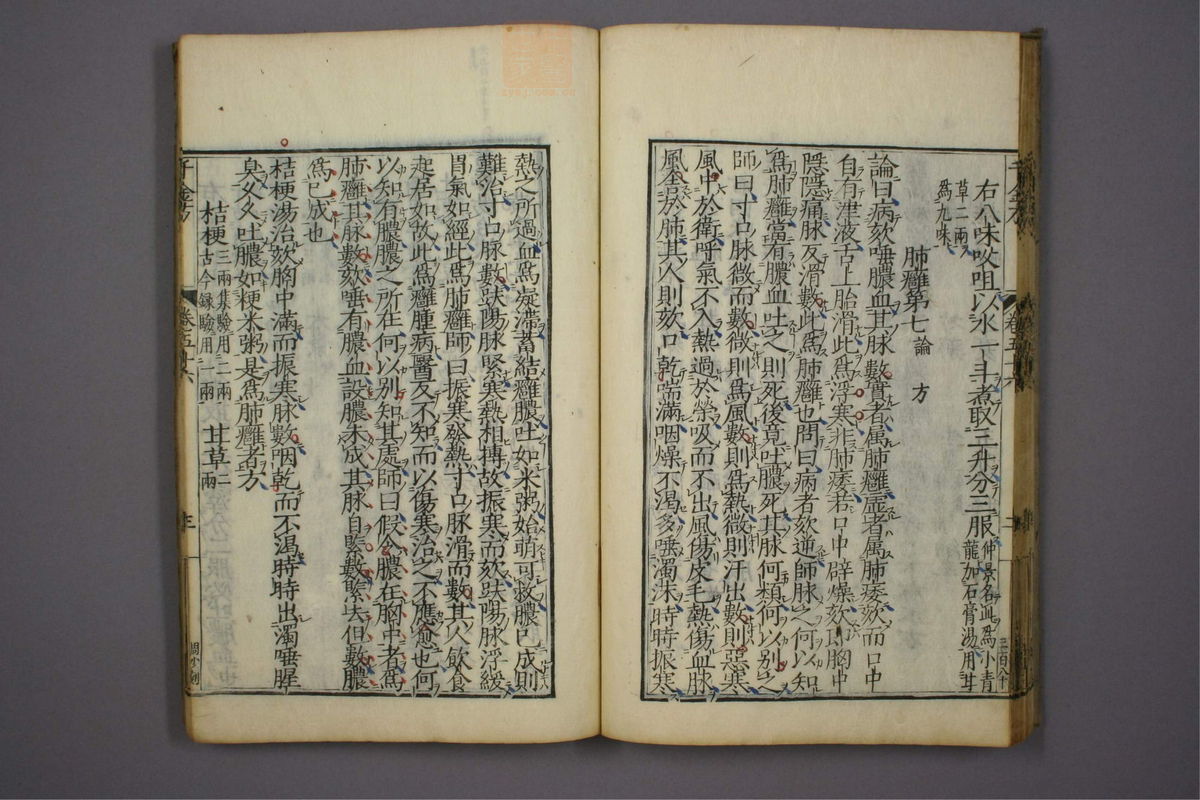 右八味㕮咀以水一斗煮取三升分三服仲景名此爲小青
龍加石膏湯用甘
草二兩
爲九味
肺癰第七論 方
論曰病欬唾膿血其脉數實者屬肺癰虛者屬肺痿欬而口中
自有津液舌上胎滑此爲浮寒非肺痿若口中辟燥欬即胸中
隱隱痛脉反滑數此爲肺癰也問曰病者欬逆師脉之何以知
爲肺癰當有膿血吐之則死後竟吐膿死其脉何類何以别之
師曰寸口脉微而數微則爲風數則爲熱微則汗出數則惡寒
風中於衛呼氣不入熱過於榮吸而不出風傷皮毛熱傷血脉
風舍於肺其人則欬口乾喘滿咽燥不渴多唾濁沫時時振寒
熱之所過血爲凝滯蓄結癰膿吐如米粥始萌可救膿已成則
難治寸口脉數趺陽脉緊寒熱相搏故振寒而欬趺陽脉浮緩
胃氣如經此爲肺癰師曰振寒發熱寸口脉滑而數其人飲食
起居如故此爲癰腫病醫反不知而以傷寒治之不應愈也何
以知有膿膿之所在何以别知其處師曰假令膿在胸中者爲
肺癰其脉數欬唾有膿血設膿未成其脉自緊數緊去但數膿
爲已成也
桔梗湯治欬胸中滿而振寒脉數咽乾而不渴時時出濁唾腥
臭久久吐膿如粳米粥是爲肺癰者方
桔梗三兩集驗用二兩
古今録驗用一兩 甘草二
兩
千金方
卷五十六